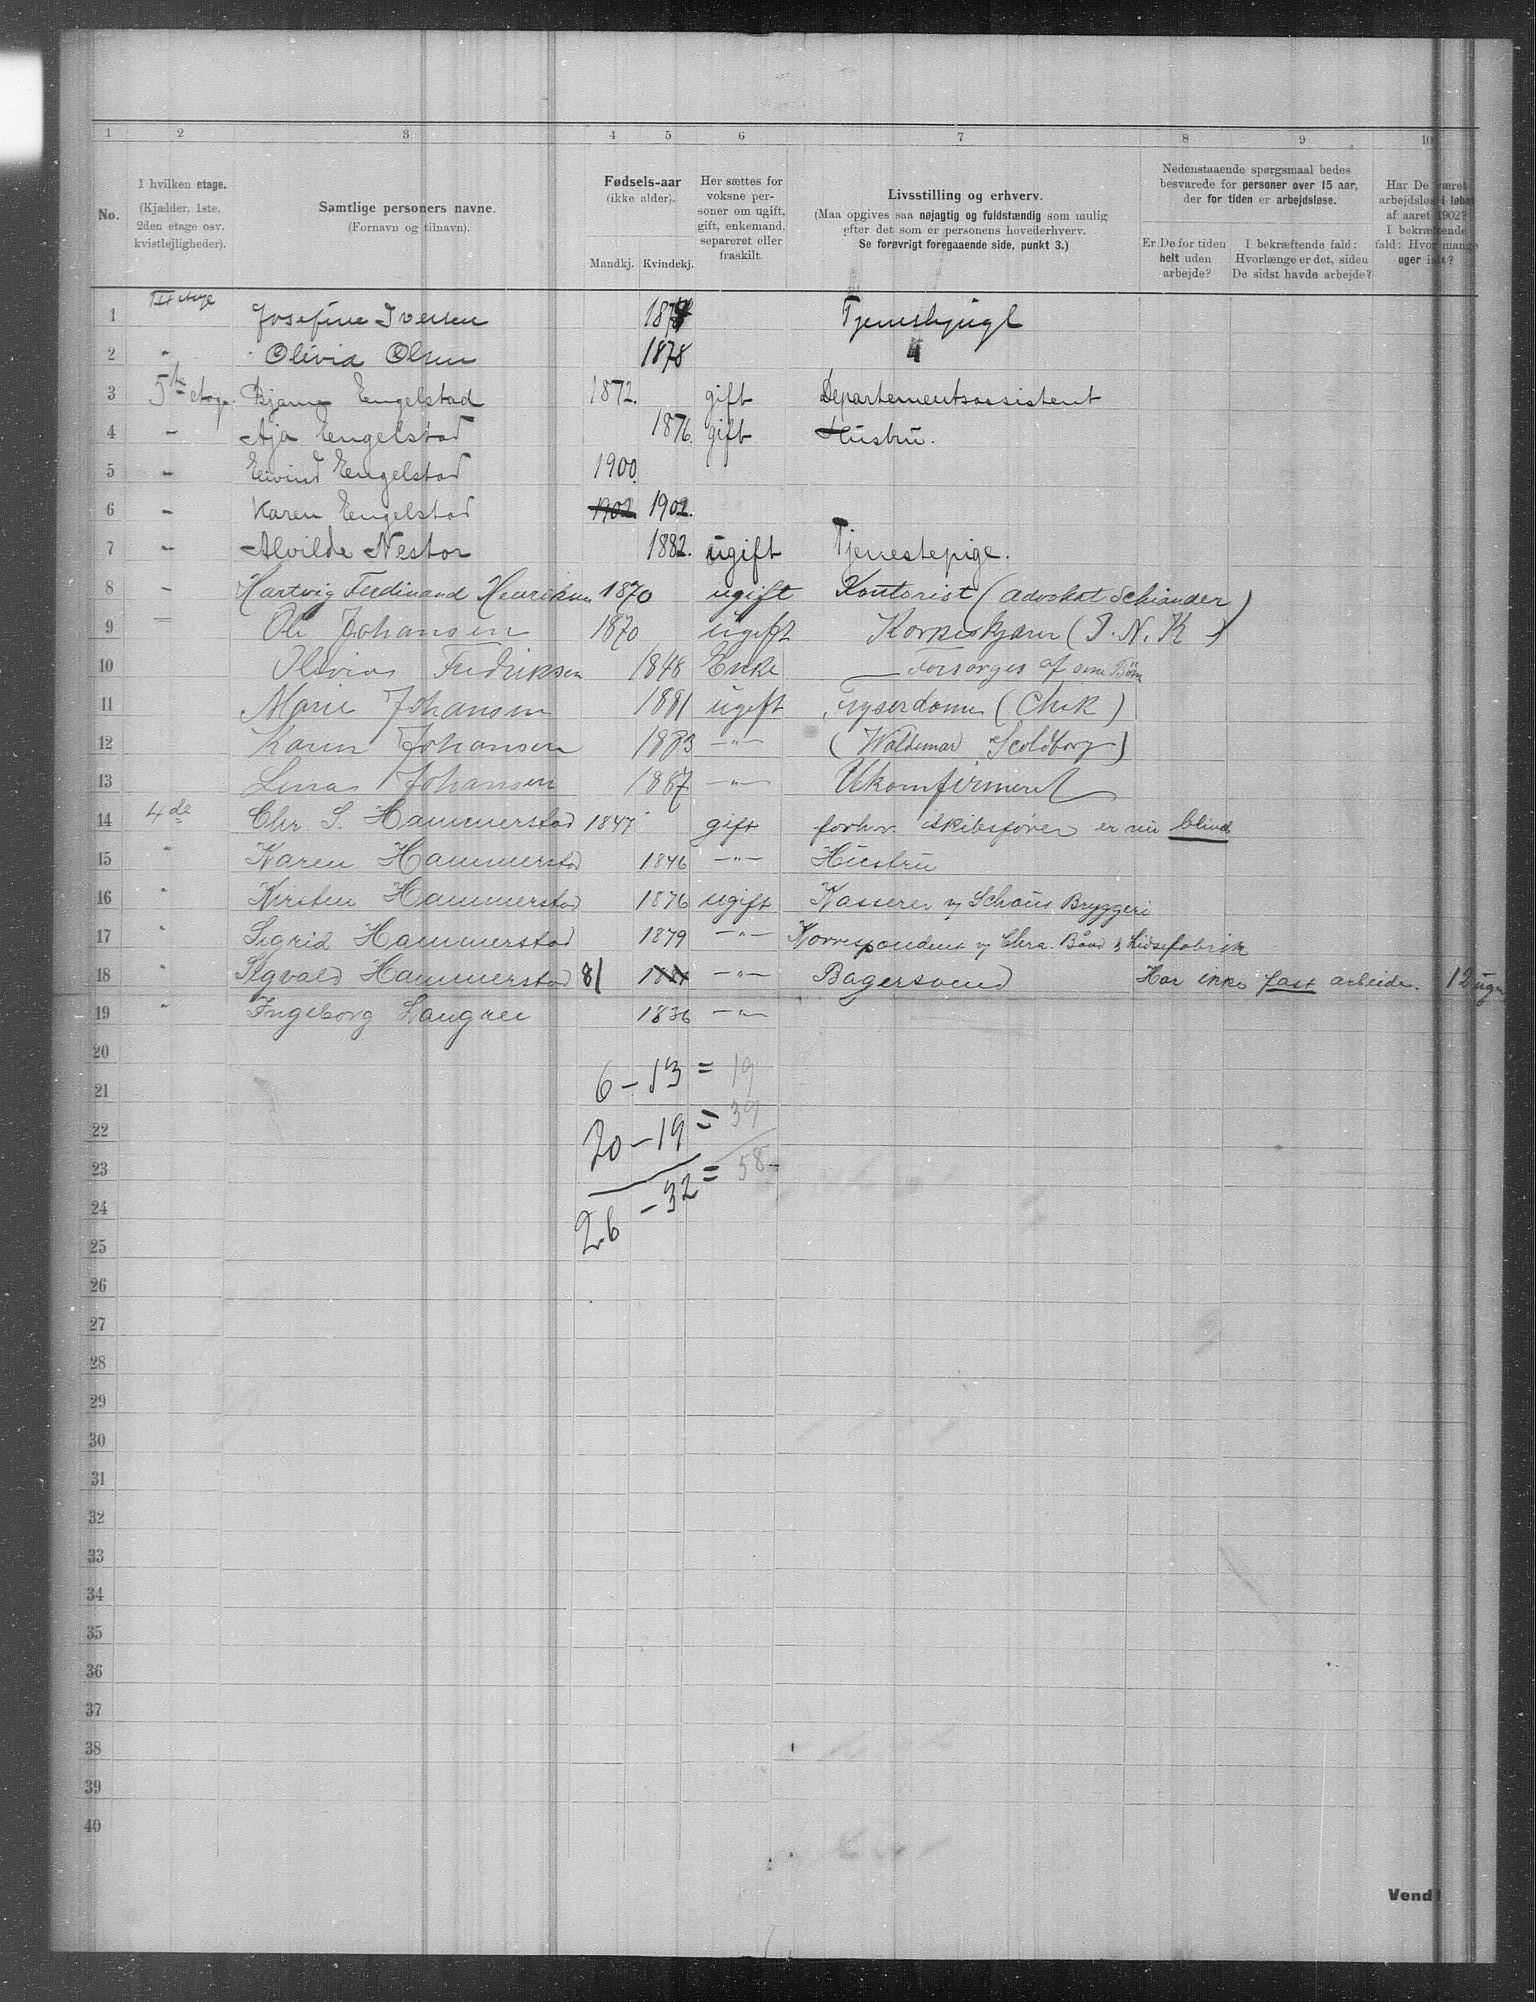 1 2 3 4 5 6 7 8 9 10
No.
I hvilken etage.
(Kjælder, 1ste.
2den etage osv.
kvistlejligheder).
Samtlige personers navne.
(Fornavn og tilnavn).
Fødsels-aar
(ikke alder).
Mandkj. Kvindekj.
Her sættes for
voksne per-
soner om ugift,
gift, enkemand,
separeret eller
fraskilt.
Livsstilling og erhverv.
(Maa opgives saa nøjagtig og fuldstændig som mulig
efter det som er personens hovederhverv.
Se forøvrigt foregaaende side, punkt 3.)
Nedenstaaende spørgsmaal bedes
besvarede for personer over 15 aar,
der for tiden er arbejdsløse.
Er De for tiden
helt uden
arbejde?
I bekræftende fald:
Hvorlænge er det, siden
De sidst havde arbejde?
Har De været
arbejdsløs i løbet
af aaret 1902?
I bekræftende
fald: Hvor mange
uger ialt?
1 Josefine Iversen
2 Olivia Olsen 1878 "
3 5te etage. Bjarne Engelstad 1872. gift Departementsassistent
4 - Aja Engelstad 1876. gift Hustru.
5 - Eivind Engelstad 1900.
6 - Karen Engelstad 1902 1902.
7 - Alvilde Nestor 1882. ugift Tjenestepige.
8 - Hartvig Ferdinand Henriksen 1870 ugift Kontorist (Advokat Schiander)
9 Ole Johansen 1870 ugift
10 Fredriksen 1848 Enke Forsørges af sine Børn
11 Marie Johansen 1881 ugift
12 Johansen 1883 -"- (Waldemar
13 Johansen 1887 -"- Ukonfirmeret
14 4de Chr. S. Hammerstad 1847 gift forhv. skibsfører er nu blind
15 " Karen Hammerstad 1846 -"- Hustru
16 " Kirsten Hammerstad 1876 ugift Kasserer v/ Schous Bryggeri
17 " Sigrid Hammerstad 1879 -"- Korrespondent v/ Chra.
18 " Sigvald Hammerstad 81 -"- Bagersvend Har ikke fast arbeide. 12 uger
19 " Ingeborg 1836 -"-
20
6 - 13 = 19
21
20 - 19 = 39
22
23
26 - 32 = 58
24
25
26
27
28
29
30
31
32
33
34
35
36
37
38
39
40
Vend!